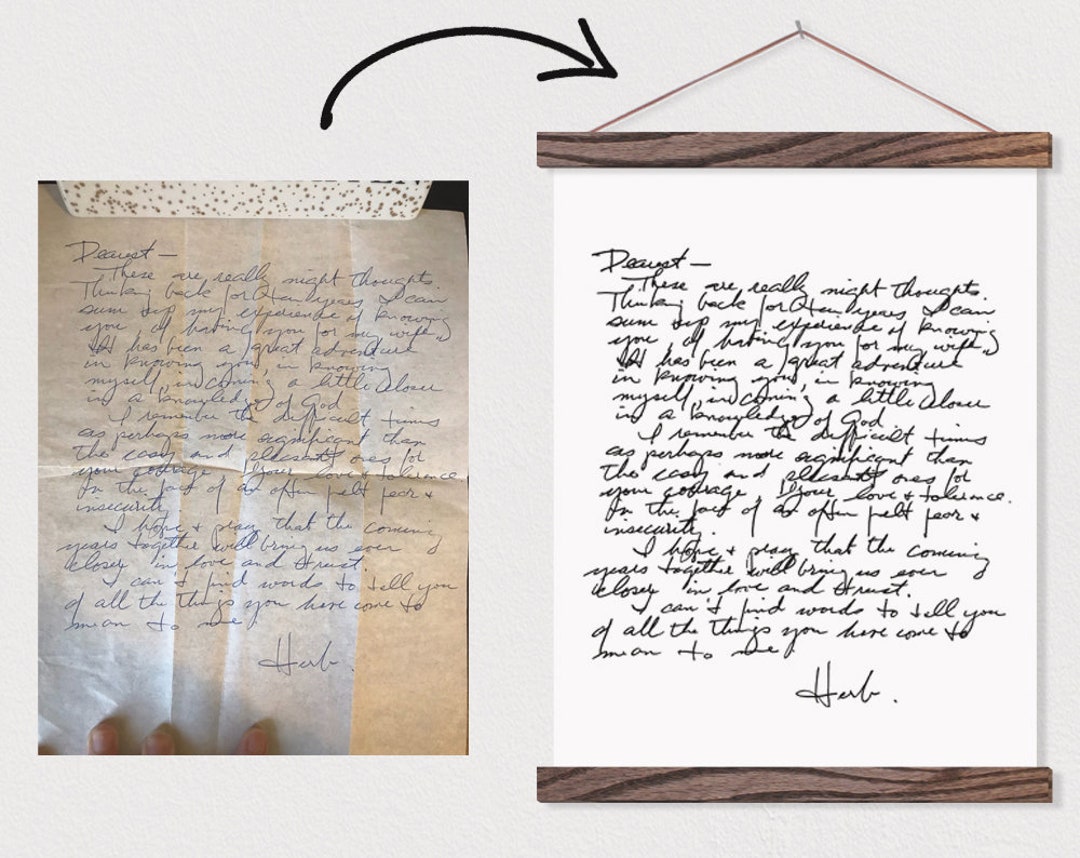 Dearest —
These are really night thoughts.
Thinking back for ten years I can
sum up my experience of knowing
you, of having you for my wife,
It has been a great adventure
in knowing you, in knowing
myself, in coming a little closer
in a knowledge of God
I remember the difficult times
as perhaps more significant than
the easy and pleasant ones for
your courage, your love & tolerance.
In the face of an often felt fear &
insecurity.
I hope & pray that the coming
years together will bring us ever
closer in love and trust.
I can't find words to tell you
of all the things you have come to
mean to me
Herb.
Dearest —
These are really night thoughts.
Thinking back for ten years I can
sum up my experience of knowing
you, of having you for my wife,
It has been a great adventure
in knowing you, in knowing
myself, in coming a little closer
in a knowledge of God
I remember the difficult times
as perhaps more significant than
the easy and pleasant ones for
your courage, your love & tolerance.
In the face of an often felt fear &
insecurity.
I hope & pray that the coming
years together will bring us ever
closer in love and trust.
I can't find words to tell you
of all the things you have come to
mean to me
Herb.